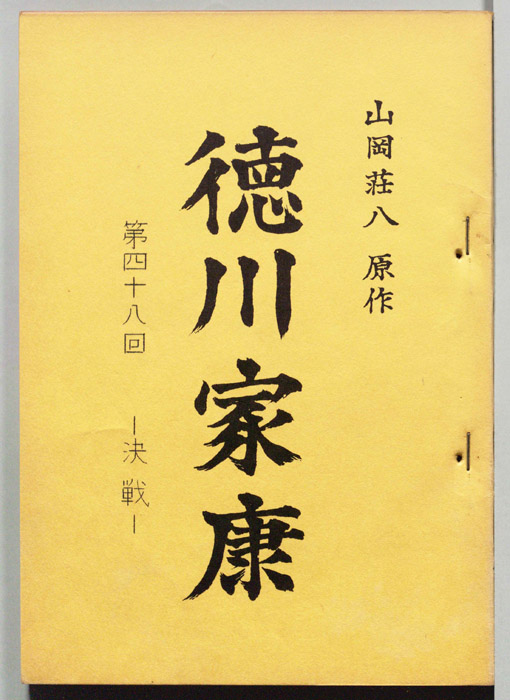 山岡荘八 原作
徳川家康
第四十八回 ー決戦ー